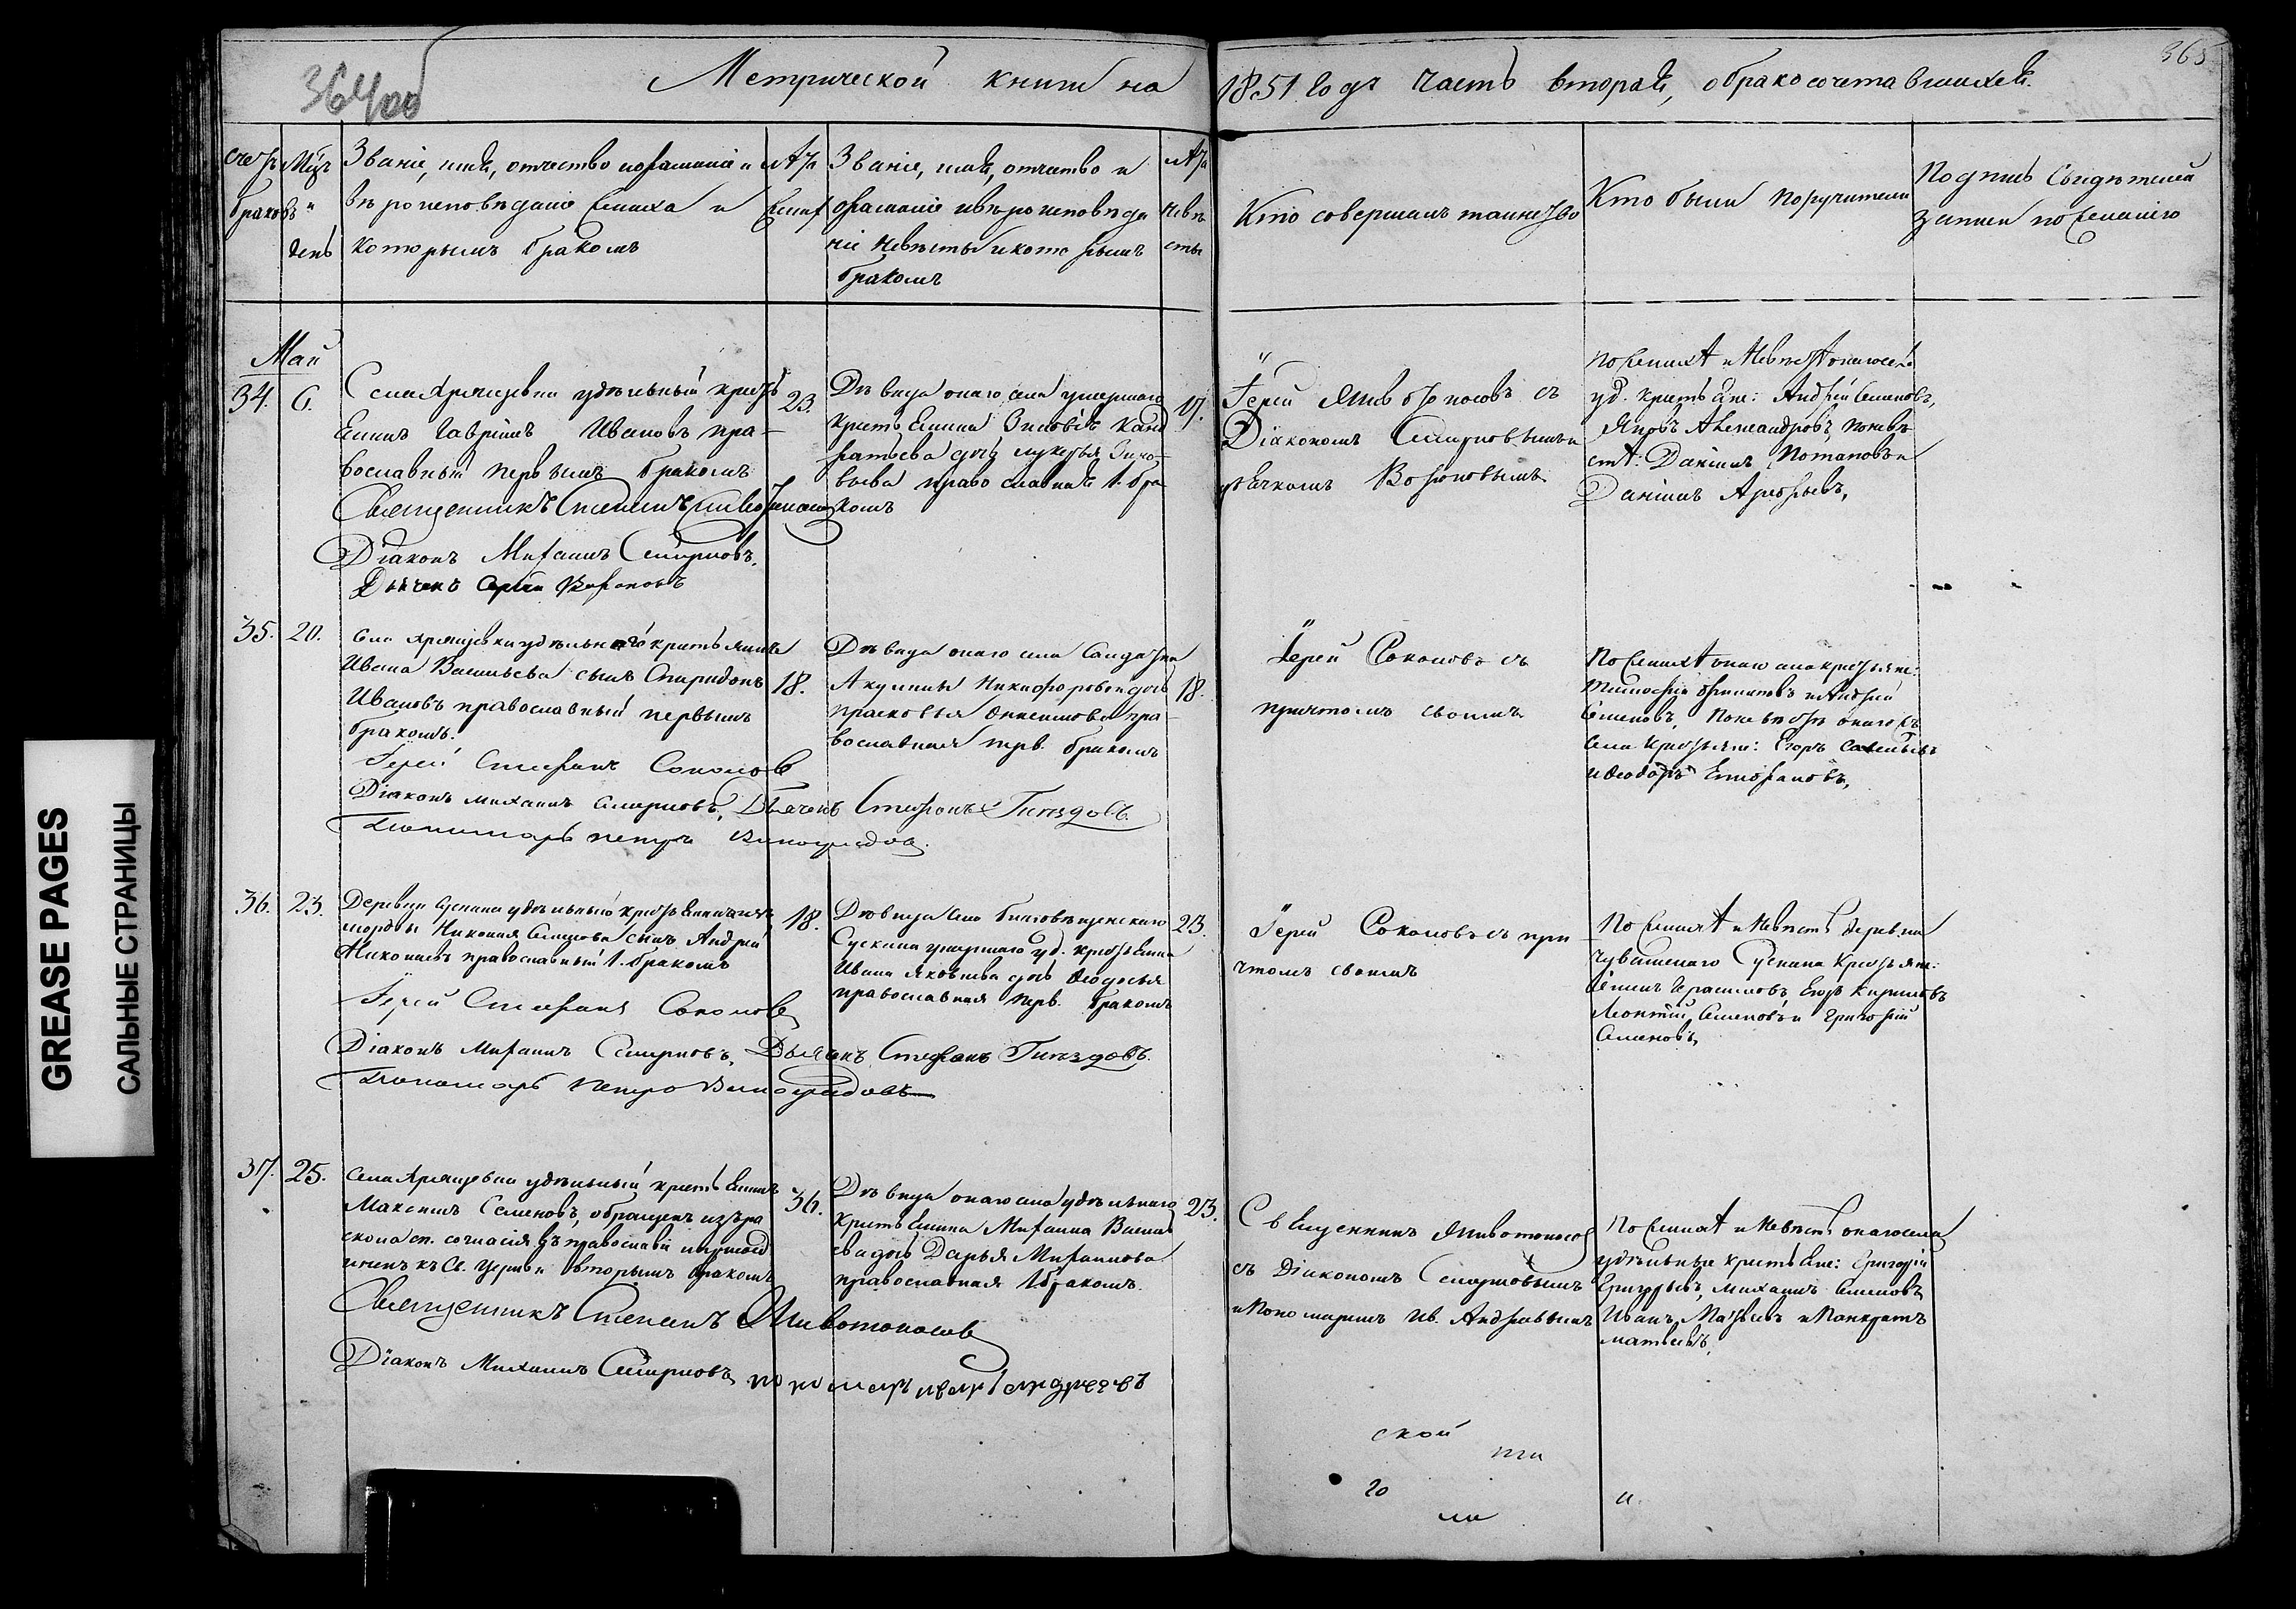 364об
365
Метрической книги на 1851 годъ часть вторая, о бракосочетавшихся.
Счетъ браковъ
Мѣц. и день
Званіе, имя, отчество и
вѣроисповѣданіе жениха и
которымъ бракомъ
Лѣта жених
Званіе, имя, отчество и
фамиліе и вѣроисповѣда
ніе невѣсты и которымъ
бракомъ
Лѣта невѣсты
Кто совершалъ таинство
Кто были поручители
Подпись свидѣтелей
записи по желанію
Май
34.
6.
Села Хрящевки удѣльный крест
янинъ Гаврилъ Ивановъ пра-
вославный первымъ бракомъ
23.
Дѣвица онаго села умершаго
дочь
православная 1. бра
комъ
17.
Іерей Животоносовъ съ
Діакономъ Смирновымъ и
По женихѣ и невѣстѣ онаго села
уд. крестьяне: Андрей Семеновъ,
Александровъ, по невѣ
стѣ: Данила Потаповъ и
Данила
Священникъ Стефанъ Животоносовъ
Діаконъ Михаилъ Смирновъ.
Дьячекъ Сергей
35.
20.
Села Хрящевки удѣльнаго крестьянина
Ивана Васильева сынъ Спиридонъ
Ивановъ православный первымъ
бракомъ.
18.
Дѣвица онаго села солдатки
Акулины Никифоровой дочь
Прасковья пра-
вославная перв. бракомъ
18.
Іерей Соколовъ съ
причтомъ своимъ
По женихѣ онаго села крестьяне:
Тимофей и Андрей
Семеновъ, по невѣстѣ онаго жъ
села крестьяне: Егоръ Савельевъ
и Ѳеодоръ
Іерей Стефанъ Соколовъ
Діаконъ Михаилъ Смирновъ, Дьячекъ Стефанъ Гнѣздовъ.
Пономарь Петръ Виноградовъ.
36.
23.
Деревни Сускана удѣльнаго крестьянина изъ
мордвы Николая Семенова сынъ Андрей
Николаевъ православный 1. бракомъ
18.
Дѣвица села Благовѣщенскаго
Сускана умершаго уд. крестьянина
Ивана Яковлева дочь Ѳедосья
православная перв. бракомъ
23.
Іерей Соколовъ съ при
чтомъ своимъ
По женихѣ и невѣстѣ деревни
Чувашскаго Сускана крестьяне:
Герасимовъ, Егоръ Кириловъ
Леонтій Семеновъ и Григорій
Семеновъ,
Іерей Стефанъ Соколовъ
Діаконъ Михаилъ Смирновъ, Дьячекъ Стефанъ Гнѣздовъ.
Пономарь Петръ Виноградовъ
37.
25.
Села Хрящевки удѣльный крестьянинъ
Максимъ Семеновъ, обращенъ изъ ра
скола сп. согласія въ православіе и присоед
иненъ къ Св. Церкви вторымъ бракомъ
36.
Дѣвица онаго села удѣльнаго
крестьянина Михаила Василь
ева дочь Дарья Михаилова
православная 1 бракомъ.
23.
Священникъ Животоносовъ
съ Діакономъ Смирновымъ
и Пономаремъ Ив. Андреевымъ
По женихѣ и невѣстѣ онаго села
удѣльные крестьяне: Григорій
Григорьевъ, Михаилъ Семеновъ
Иванъ и Панкратъ
Матвѣевъ.
Священникъ Стефанъ Животоносовъ
Діаконъ Михаилъ Смирновъ пономарь иванъ андреевъ
ской
ти
го
ли
и.
GREASE PAGES
САЛЬНЫЕ СТРАНИЦЫ